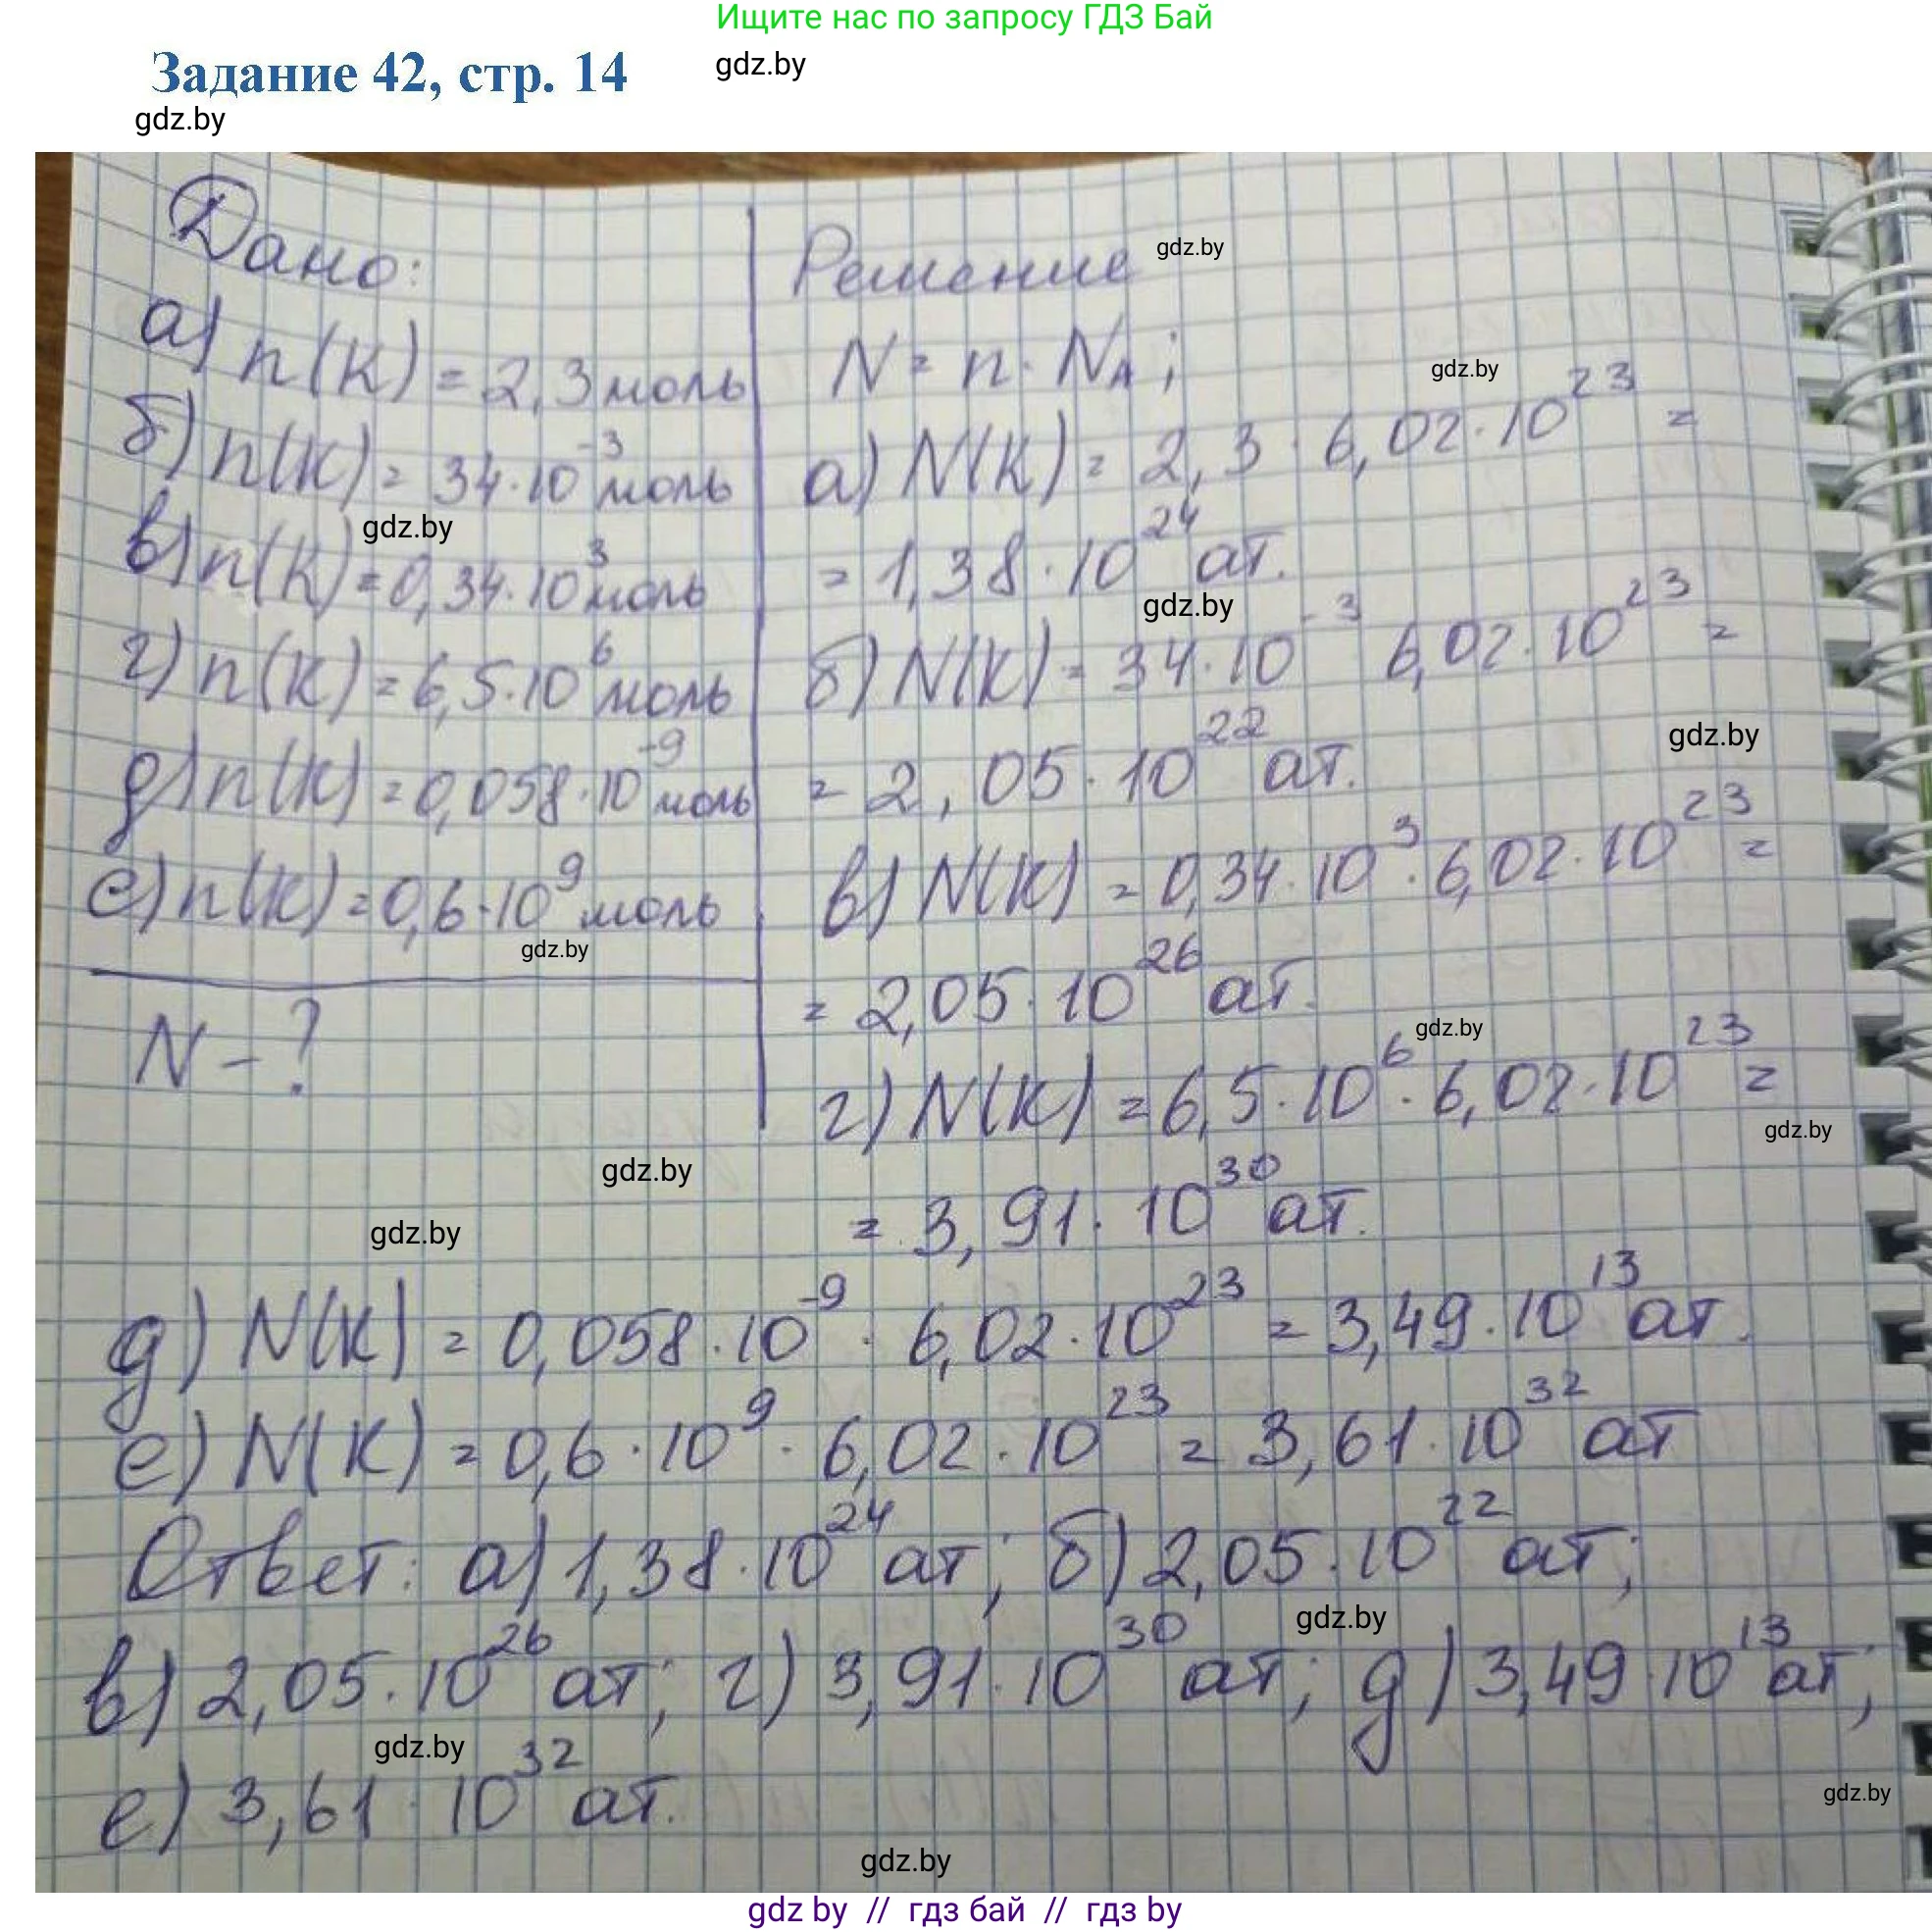 Ищите нас по запросу ГДЗ Бай
Задание 42, стр. 14
gdz.by
gdz.by
Дано:
а) n(K) = 2,3 моль
б) n(K) = 34·10⁻³ моль
gdz.by
в) n(K) = 0,34·10³ моль
г) n(K) = 6,5·10⁶ моль
д) n(K) = 0,058·10⁻⁹ моль
е) n(K) = 0,6·10⁹ моль
gdz.by
N - ?
Решение
gdz.by
N = n · Nᴀ ;
gdz.by
а) N(K) = 2,3 · 6,02 · 10²³ =
= 1,38 · 10²⁴ ат.
gdz.by
б) N(K) = 34 · 10⁻³ 6,02 · 10²³ =
gdz.by
= 2,05 · 10²² ат.
в) N(K) = 0,34 · 10³ · 6,02 · 10²³ =
= 2,05 · 10²⁶ ат.
gdz.by
г) N(K) = 6,5 · 10⁶ · 6,02 · 10²³ =
gdz.by
gdz.by
= 3,91 · 10³⁰ ат.
gdz.by
д) N(K) = 0,058 · 10⁻⁹ · 6,02 · 10²³ = 3,49 · 10¹³ ат.
е) N(K) = 0,6 · 10⁹ · 6,02 · 10²³ = 3,61 · 10³² ат
Ответ: а) 1,38 · 10²⁴ ат ; б) 2,05 · 10²² ат ;
gdz.by
в) 2,05 · 10²⁶ ат ; г) 3,91 · 10³⁰ ат ; д) 3,49 · 10¹³ ат ;
gdz.by
е) 3,61 · 10³² ат.
gdz.by
gdz.by
gdz by // гдз бай // гдз by